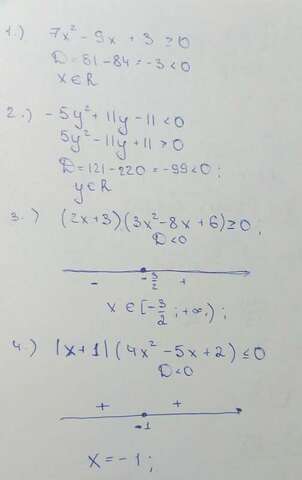 1.) 7x² - 9x + 3 ≥ 0
D = 81 - 84 = -3 < 0
x ∈ R
2.) -5y² + 11y - 11 < 0
5y² - 11y + 11 > 0
D = 121 - 220 = -99 < 0;
y ∈ R
3.) (2x+3)(3x² - 8x + 6) ≥ 0;
D < 0
- -3/2 +
x ∈ [-3/2; +∞);
4.) |x+1|(4x² - 5x + 2) ≤ 0
D < 0
+ +
-1
x = -1;